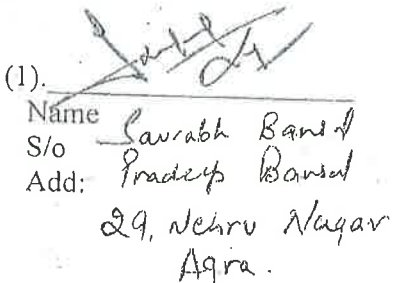 (1).
Name Saurabh Bansal
S/o Pradeep Bansal
Add:
29, Nehru Nagar
Agra.